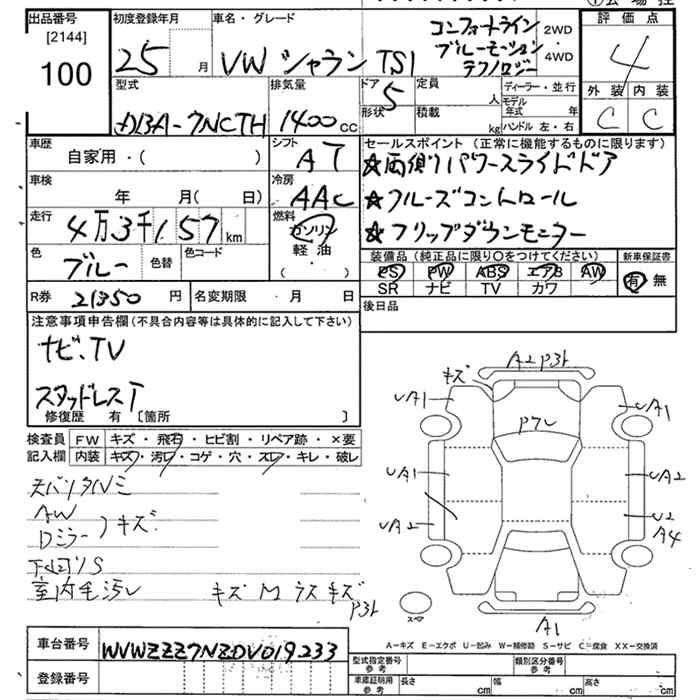 出品番号 [2144] 100
初度登録年月 25 月
車名・グレード VW シャラン TSI
コンフォートライン
ブルーモーション
テクノロジー
2WD・4WD
評価点 4
外装 C 内装 C
型式 DBA-7NCTH
排気量 1400 cc
ドア 5
形状
定員 人
積載 kg
ディーラー・並行
モデル年式 年
ハンドル 左・右
車歴 自家用・( )
シフト AT
車検 年 月( 日)
冷房 AAC
走行 4万3千157 km
燃料 ガソリン 軽油 ( ・ )
色 ブルー 色替 色コード
R券 21350 円
名変期限 ・ 月 ・ 日
セールスポイント (正常に機能するものに限ります)
☆両側パワースライドドア
☆クルーズコントロール
☆フリップダウンモニター
装備品 (純正品に限り○をつけてください)
PS PW ABS エアB AW
SR ナビ TV カワ
新車保証書 有・無
後日品
注意事項申告欄 (不具合内容等は具体的に記入して下さい)
ナビ、TV
スタッドレスT
修復歴 有 〔箇所 〕
検査員記入欄
FW キズ・飛石・ヒビ割・リペア跡・×要
内装 キズ・汚レ・コゲ・穴・スレ・キレ・破レ
AW
Dミラー 〉キズ
下回りS
室内毛汚レ
キズ M ラス キズ P31
キズ A2 P31
UA1
UA1
UA1
UA2
UA2
U2
A4
A1
スペア
A-キズ E-エクボ U-凹み W-補修跡 S-サビ C-腐食 XX-交換済
車台番号 WVWZZZ7NZDV019233
登録番号
型式指定番号 参考
類別区分番号 参考
車庫証明用 参考 長さ cm 幅 cm 高さ cm